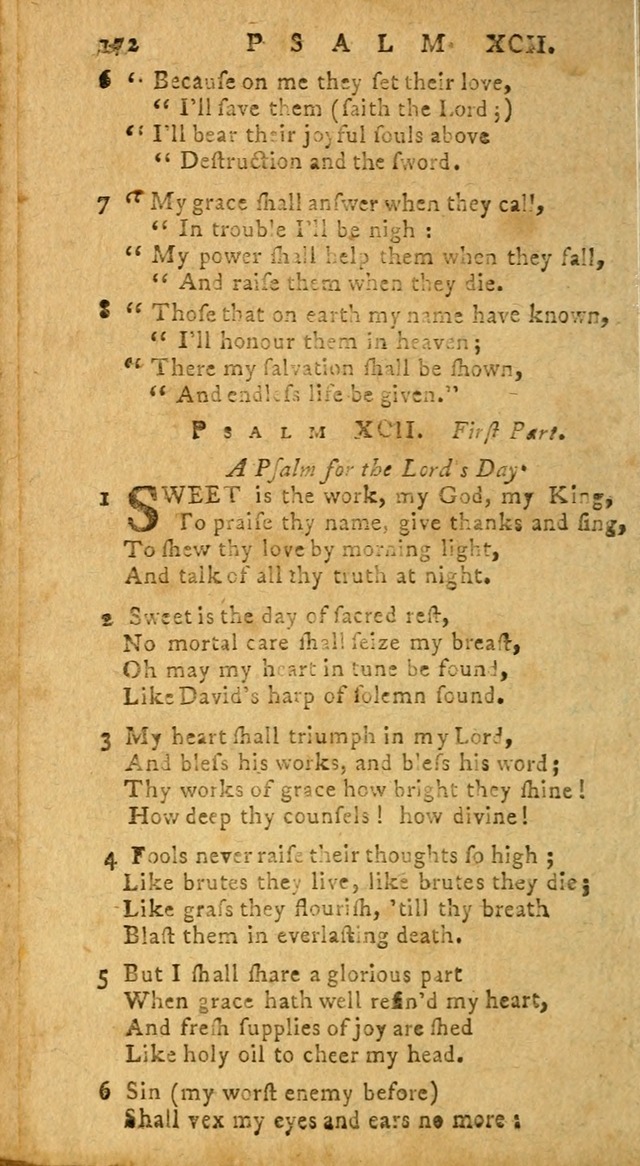 172 PSALM XCII.
6 “ Becauſe on me they ſet their love,
“ I'll ſave them (ſaith the Lord;)
“ I'll bear their joyful ſouls above
“ Deſtruction and the ſword.
7 “ My grace ſhall anſwer when they call,
“ In trouble I'll be nigh :
“ My power ſhall help them when they fall,
“ And raiſe them when they die.
8 “ Thoſe that on earth my name have known,
“ I'll honour them in heaven;
“ There my ſalvation ſhall be ſhown,
“ And endleſs life be given.”
PSALM XCII. Firſt Part.
A Pſalm for the Lord's Day.
1 SWEET is the work, my God, my King,
To praiſe thy name, give thanks and ſing,
To ſhew thy love by morning light,
And talk of all thy truth at night.
2 Sweet is the day of ſacred reſt,
No mortal care ſhall ſeize my breaſt,
Oh may my heart in tune be found,
Like David's harp of ſolemn ſound.
3 My heart ſhall triumph in my Lord,
And bleſs his works, and bleſs his word;
Thy works of grace how bright they ſhine!
How deep thy counſels! how divine!
4 Fools never raiſe their thoughts ſo high ;
Like brutes they live, like brutes they die;
Like graſs they flouriſh, 'till thy breath
Blaſt them in everlaſting death.
5 But I ſhall ſhare a glorious part
When grace hath well refin'd my heart,
And freſh ſupplies of joy are ſhed
Like holy oil to cheer my head.
6 Sin (my worſt enemy before)
Shall vex my eyes and ears no more :